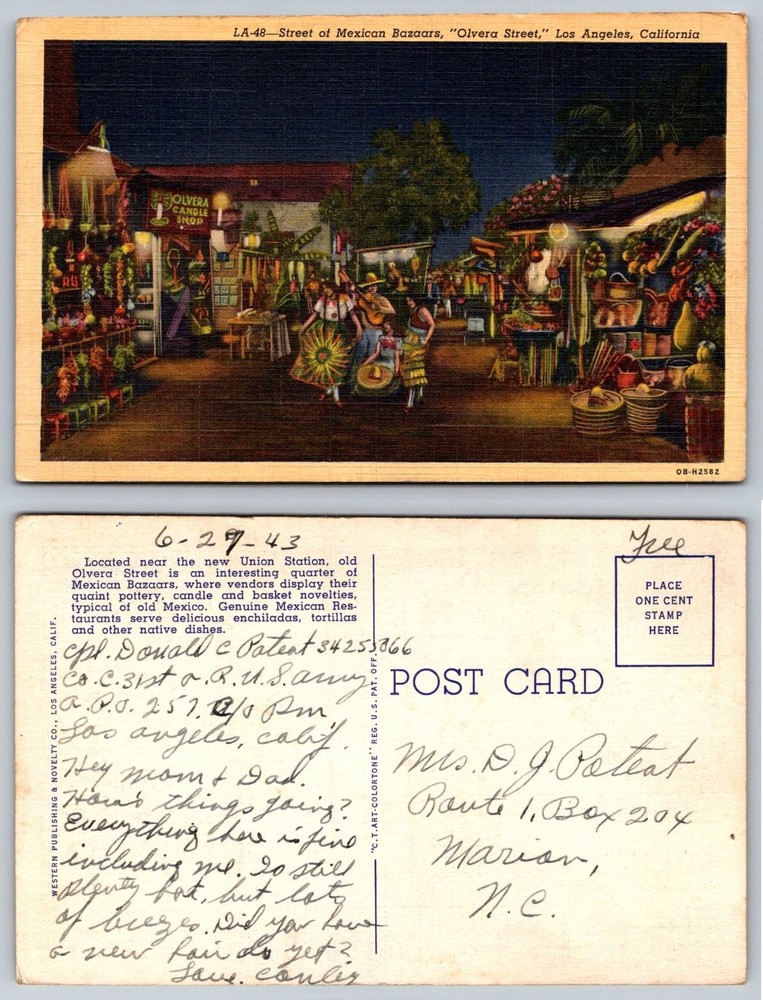 LA-48—Street of Mexican Bazaars, "Olvera Street," Los Angeles, California
OLVERA
CANDLE
SHOP
OB-H2582
6-29-43
Free
Located near the new Union Station, old
Olvera Street is an interesting quarter of
Mexican Bazaars, where vendors display their
quaint pottery, candle and basket novelties,
typical of old Mexico. Genuine Mexican Res-
taurants serve delicious enchiladas, tortillas
and other native dishes.
PLACE
ONE CENT
STAMP
HERE
WESTERN PUBLISHING & NOVELTY CO., LOS ANGELES, CALIF.
"C.T. ART-COLORTONE" REG. U.S. PAT. OFF.
POST CARD
Cpl. Donald C Poteat 34255366
Co. C. 31st A.R. U.S. Army
A.P.O. 257, C/O P.m
Los angeles, calif.
Hey mom & Dad.
How's things going?
Everything here is fine
including me. Is still
plenty hot, but lots
of breezes. Did you have
a new hair do yet?
Love. Conley
Mrs. D. J. Poteat
Route 1, Box 204
Marion,
N.C.